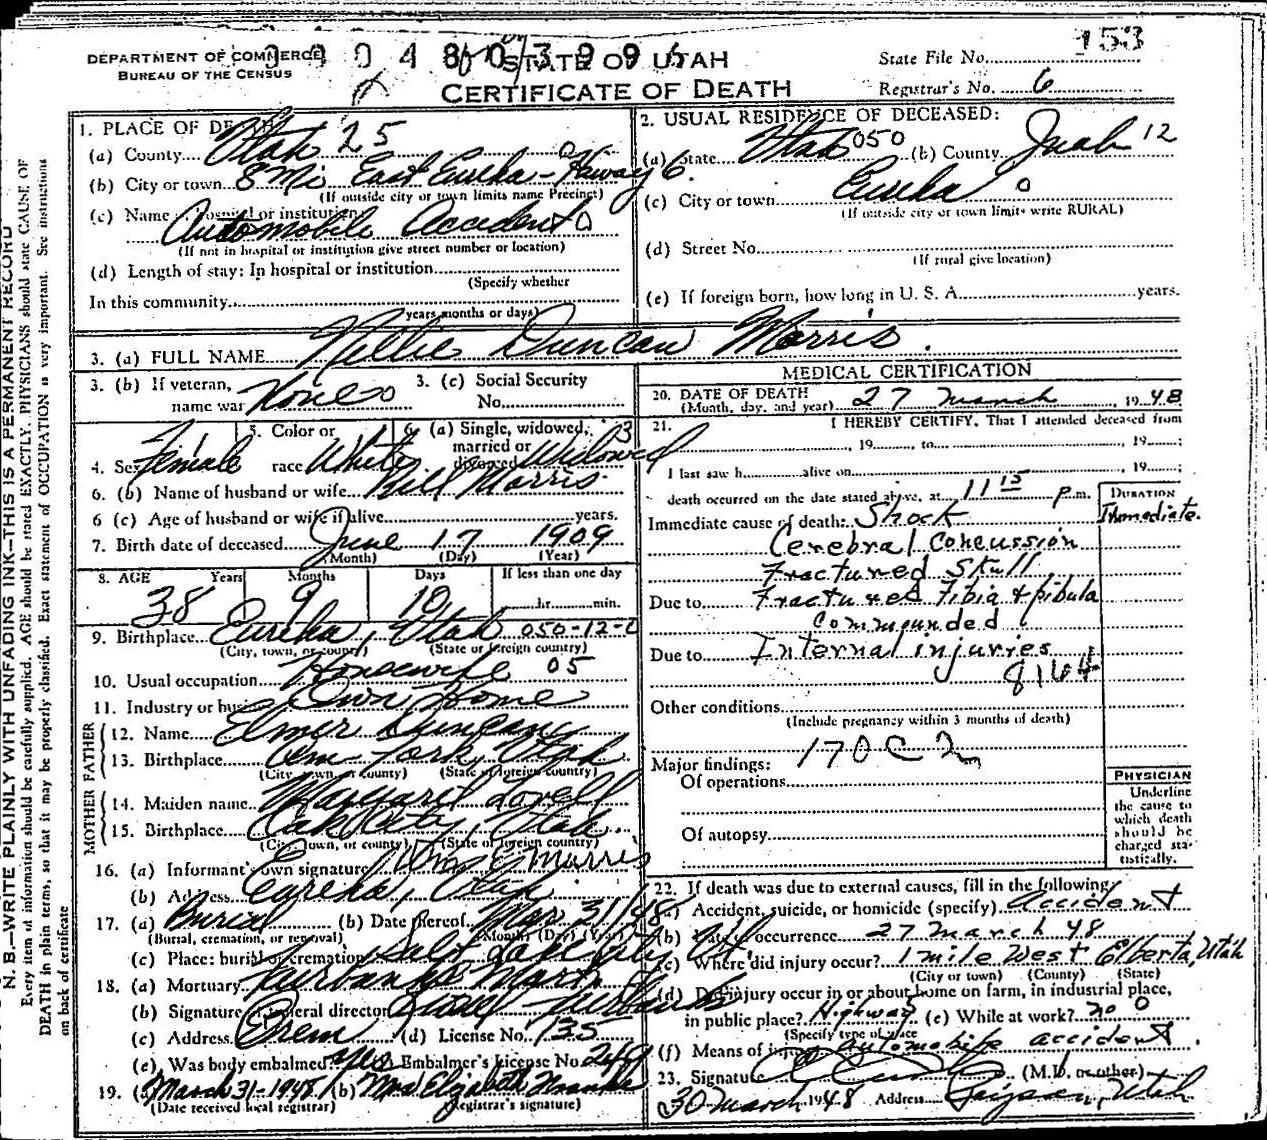 153
DEPARTMENT OF COMMERCE STATE OF UTAH State File No.
BUREAU OF THE CENSUS
CERTIFICATE OF DEATH Registrar's No. 6
1. PLACE OF DEATH
(a) County Utah 25
(b) City or town 8 Mi East Eureka - Hiway 6.
(If outside city or town limits name Precinct)
(c) Name of hospital or institution
Automobile Accident
(If not in hospital or institution give street number or location)
(d) Length of stay: In hospital or institution
(Specify whether
In this community
years months or days)
2. USUAL RESIDENCE OF DECEASED:
(a) State Utah 050 (b) County Juab 12
(c) City or town Eureka 0
(If outside city or town limits write RURAL)
(d) Street No.
(If rural give location)
(e) If foreign born, how long in U. S. A. years.
3. (a) FULL NAME Nellie Duncan Morris.
3. (b) If veteran, name war None 3. (c) Social Security No.
4. Sex Female 5. Color or race White 6. (a) Single, widowed, married or divorced Widowed 3
6. (b) Name of husband or wife Bill Morris.
6 (c) Age of husband or wife if alive years.
7. Birth date of deceased June 17 1909
(Month) (Day) (Year)
8. AGE Years Months Days If less than one day
38 9 10 hr. min.
9. Birthplace Eureka, Utah 050-12-0
(City, town, or county) (State or foreign country)
10. Usual occupation Housewife 05
11. Industry or business Own Home
FATHER
12. Name Elmer Duncan
13. Birthplace Utah
(City, town, or county) (State or foreign country)
MOTHER
14. Maiden name Margaret Lovell
15. Birthplace Oak City, Utah
(City, town, or county) (State or foreign country)
16. (a) Informant's own signature Wm E Morris
(b) Address Eureka, Utah
17. (a) Burial (b) Date thereof Mar 31 1948
(Burial, cremation, or removal) (Month) (Day) (Year)
(c) Place: burial or cremation Salt Lake City, Ut.
18. (a) Mortuary
(b) Signature of funeral director
(c) Address Orem (d) License No. 135
(e) Was body embalmed? Yes Embalmer's License No. 249
19. (a) March 31-1948 (b) Mrs Elizabeth
(Date received local registrar) (Registrar's signature)
MEDICAL CERTIFICATION
20. DATE OF DEATH
(Month, day, and year) 27 March, 1948
21. I HEREBY CERTIFY, That I attended deceased from
, 19 to , 19 ;
I last saw h alive on , 19 ;
death occurred on the date stated above, at 11 15 P.m.
DURATION
Immediate cause of death: Shock Immediate.
Cerebral Concussion
Fractured Skull
Due to Fractured Tibia + fibula
Compounded
Due to Internal injuries
8164
Other conditions
(Include pregnancy within 3 months of death)
170C2
Major findings:
Of operations
Of autopsy
PHYSICIAN
Underline
the cause to
which death
should be
charged sta-
tistically.
22. If death was due to external causes, fill in the following
(a) Accident, suicide, or homicide (specify) Accident
(b) Date of occurrence 27 March 48
(c) Where did injury occur? 1 mile West Elberta, Utah
(City or town) (County) (State)
(d) Did injury occur in or about home on farm, in industrial place,
in public place? Highway (e) While at work? no 0
(Specify type of place
(f) Means of injury automobile accident.
23. Signature (M.D. or other)
30 March 1948 Address Payson, Utah
N. B.—WRITE PLAINLY WITH UNFADING INK—THIS IS A PERMANENT RECORD
Every item of information should be carefully supplied. AGE should be stated EXACTLY. PHYSICIANS should state CAUSE OF
DEATH in plain terms, so that it may be properly classified. Exact statement of OCCUPATION is very important. See instructions
on back of certificate